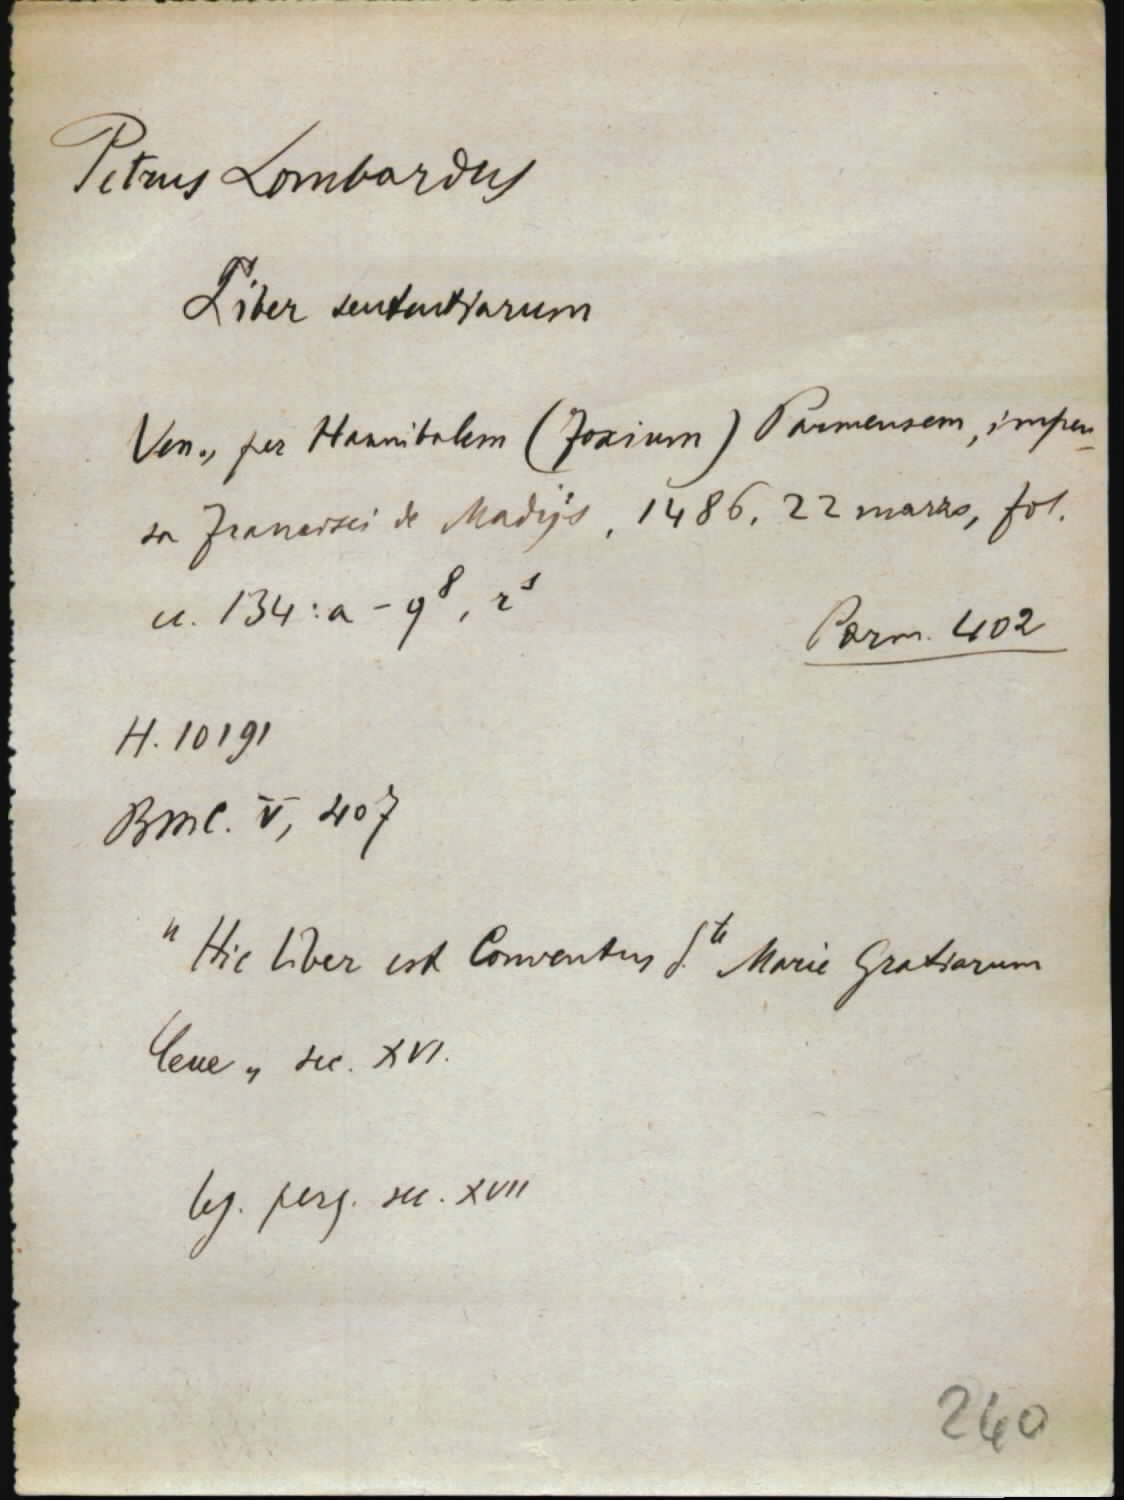 Petrus Lombardus
Liber sententiarum
Ven., per Hannibalem (Foxium) Parmensem, impen-
sa Francisci de Madijs, 1486, 22 marzo, fol.
cc. 134: a - q⁸, r⁶
Parm. 402
H. 10191
BMC. V, 407
"Hic liber est Conventus S.te Marie Gratiarum
Cene„ sec. XVI.
leg. perg. sec. XVII
240